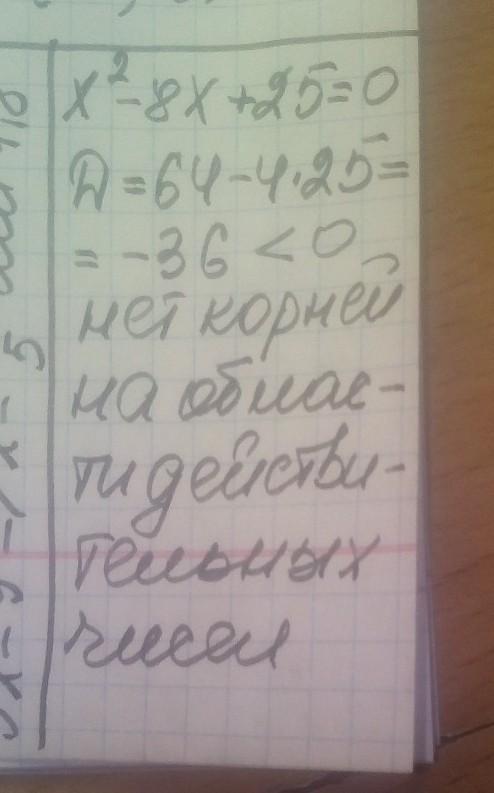 x² - 8x + 25 = 0
D = 64 - 4·25 =
= -36 < 0
нет корней
на облас-
ти действи-
тельных
чисел